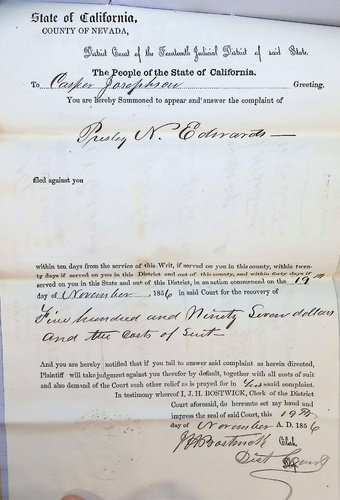 State of California,
COUNTY OF NEVADA,
District Court of the Fourteenth Judicial District of said State.
The People of the State of California.
To Casper Josephson Greeting.
You are hereby Summoned to appear and answer the complaint of
Presley N. Edwards
filed against you
within ten days from the service of this Writ, if served on you in this county, within twen-
ty days if served on you in this District and out of this county, and within forty days if
served on you in this State and out of this District, in an action commenced on the 19th
day of November 1856 in said Court for the recovery of
Five hundred and Ninety Seven dollars
and the costs of Suit
And you are hereby notified that if you fail to answer said complaint as herein directed,
Plaintiff will take judgment against you therefor by default, together with all costs of suit
and also demand of the Court such other relief as is prayed for in his said complaint.
In testimony whereof I, J. H. BOSTWICK, Clerk of the District
Court aforesaid, do hereunto set my hand and
impress the seal of said Court, this 19th
day of November A. D. 1856
J H Bostwick Clerk
Dist Court